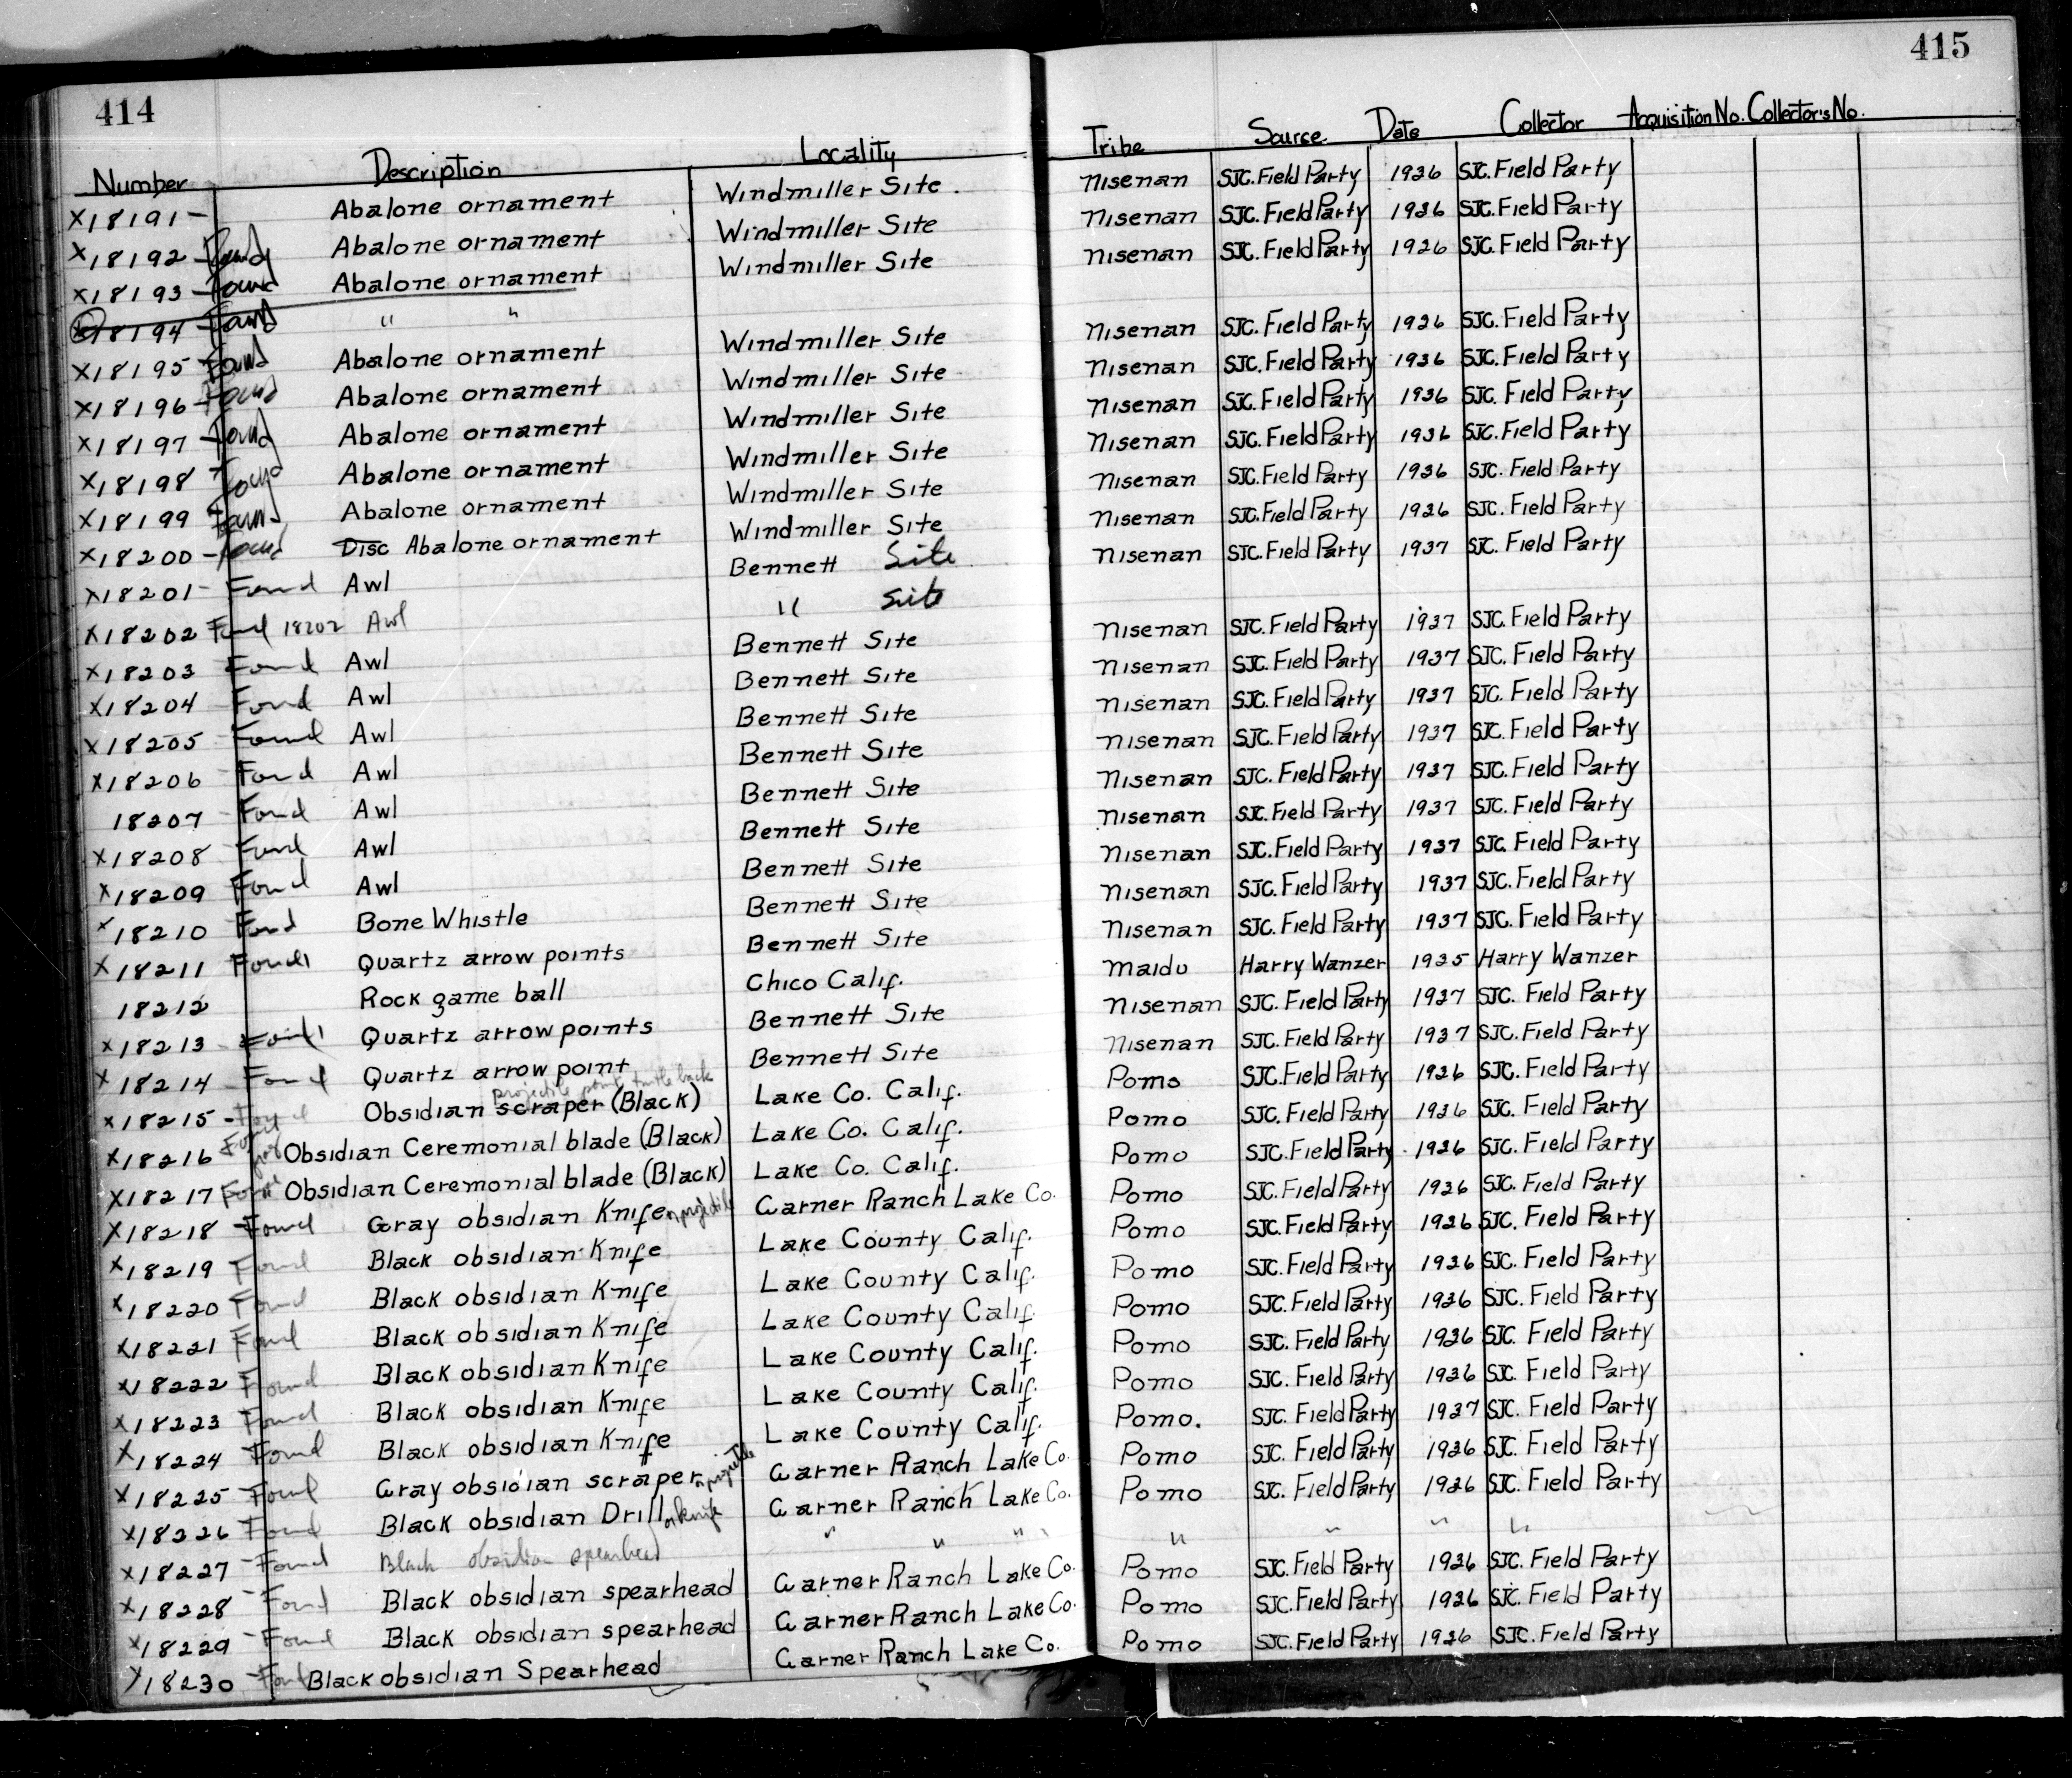 414
Number Description Locality
X18191- Abalone ornament Windmiller Site.
X18192-Found Abalone ornament Windmiller Site
X18193-Found Abalone ornament Windmiller Site
X18194-Found " "
X18195-Found Abalone ornament Windmiller Site
X18196-Found Abalone ornament Windmiller Site
X18197-Found Abalone ornament Windmiller Site
X18198-Found Abalone ornament Windmiller Site
X18199 Found Abalone ornament Windmiller Site
X18200-Found Disc Abalone ornament Windmiller Site
X18201-Found Awl Bennett Site
X18202 Found 18202 Awl " site
X18203 Found Awl Bennett Site
X18204 Found Awl Bennett Site
X18205 Found Awl Bennett Site
X18206 Found Awl Bennett Site
18207 Found Awl Bennett Site
X18208 Found Awl Bennett Site
X18209 Found Awl Bennett Site
X18210 Found Bone Whistle Bennett Site
X18211 Found Quartz arrow points Bennett Site
18212 Rock game ball Chico Calif.
X18213-Found Quartz arrow points Bennett Site
X18214-Found Quartz arrow point Bennett Site
projectile point turtle back
X18215-Found Obsidian scraper (Black) Lake Co. Calif.
X18216 Found Obsidian Ceremonial blade (Black) Lake Co. Calif.
X18217 Found Obsidian Ceremonial blade (Black) Lake Co. Calif.
X18218-Found Gray obsidian Knife or projectile Garner Ranch Lake Co.
X18219 Found Black obsidian Knife Lake County Calif.
X18220 Found Black obsidian Knife Lake County Calif.
X18221 Found Black obsidian Knife Lake County Calif.
X18222 Found Black obsidian Knife Lake County Calif.
X18223 Found Black obsidian Knife Lake County Calif.
X18224 Found Black obsidian Knife Lake County Calif.
X18225 Found Gray obsidian scraper or projectile Garner Ranch Lake Co.
X18226 Found Black obsidian Drill or knife Garner Ranch Lake Co.
X18227 Found Black obsidian spearhead " " "
X18228 Found Black obsidian spearhead Garner Ranch Lake Co.
X18229 Found Black obsidian spearhead Garner Ranch Lake Co.
X18230 Found Black obsidian Spearhead Garner Ranch Lake Co.
415
Tribe Source Date Collector Acquisition No. Collector's No.
Nisenan SJC. Field Party 1936 SJC. Field Party
Nisenan SJC. Field Party 1936 SJC. Field Party
Nisenan SJC. Field Party 1936 SJC. Field Party
Nisenan SJC. Field Party 1936 SJC. Field Party
Nisenan SJC. Field Party 1936 SJC. Field Party
Nisenan SJC. Field Party 1936 SJC. Field Party
Nisenan SJC. Field Party 1936 SJC. Field Party
Nisenan SJC. Field Party 1936 SJC. Field Party
Nisenan SJC. Field Party 1936 SJC. Field Party
Nisenan SJC. Field Party 1937 SJC. Field Party
Nisenan SJC. Field Party 1937 SJC. Field Party
Nisenan SJC. Field Party 1937 SJC. Field Party
Nisenan SJC. Field Party 1937 SJC. Field Party
Nisenan SJC. Field Party 1937 SJC. Field Party
Nisenan SJC. Field Party 1937 SJC. Field Party
Nisenan SJC. Field Party 1937 SJC. Field Party
Nisenan SJC. Field Party 1937 SJC. Field Party
Nisenan SJC. Field Party 1937 SJC. Field Party
Nisenan SJC. Field Party 1937 SJC. Field Party
Maidu Harry Wanzer 1935 Harry Wanzer
Nisenan SJC. Field Party 1937 SJC. Field Party
Nisenan SJC. Field Party 1937 SJC. Field Party
Pomo SJC. Field Party 1936 SJC. Field Party
Pomo SJC. Field Party 1936 SJC. Field Party
Pomo SJC. Field Party 1936 SJC. Field Party
Pomo SJC. Field Party 1936 SJC. Field Party
Pomo SJC. Field Party 1936 SJC. Field Party
Pomo SJC. Field Party 1936 SJC. Field Party
Pomo SJC. Field Party 1936 SJC. Field Party
Pomo SJC. Field Party 1936 SJC. Field Party
Pomo SJC. Field Party 1936 SJC. Field Party
Pomo. SJC. Field Party 1937 SJC. Field Party
Pomo SJC. Field Party 1936 SJC. Field Party
Pomo SJC. Field Party 1936 SJC. Field Party
" " " "
Pomo SJC. Field Party 1936 SJC. Field Party
Pomo SJC. Field Party 1936 SJC. Field Party
Pomo SJC. Field Party 1936 SJC. Field Party